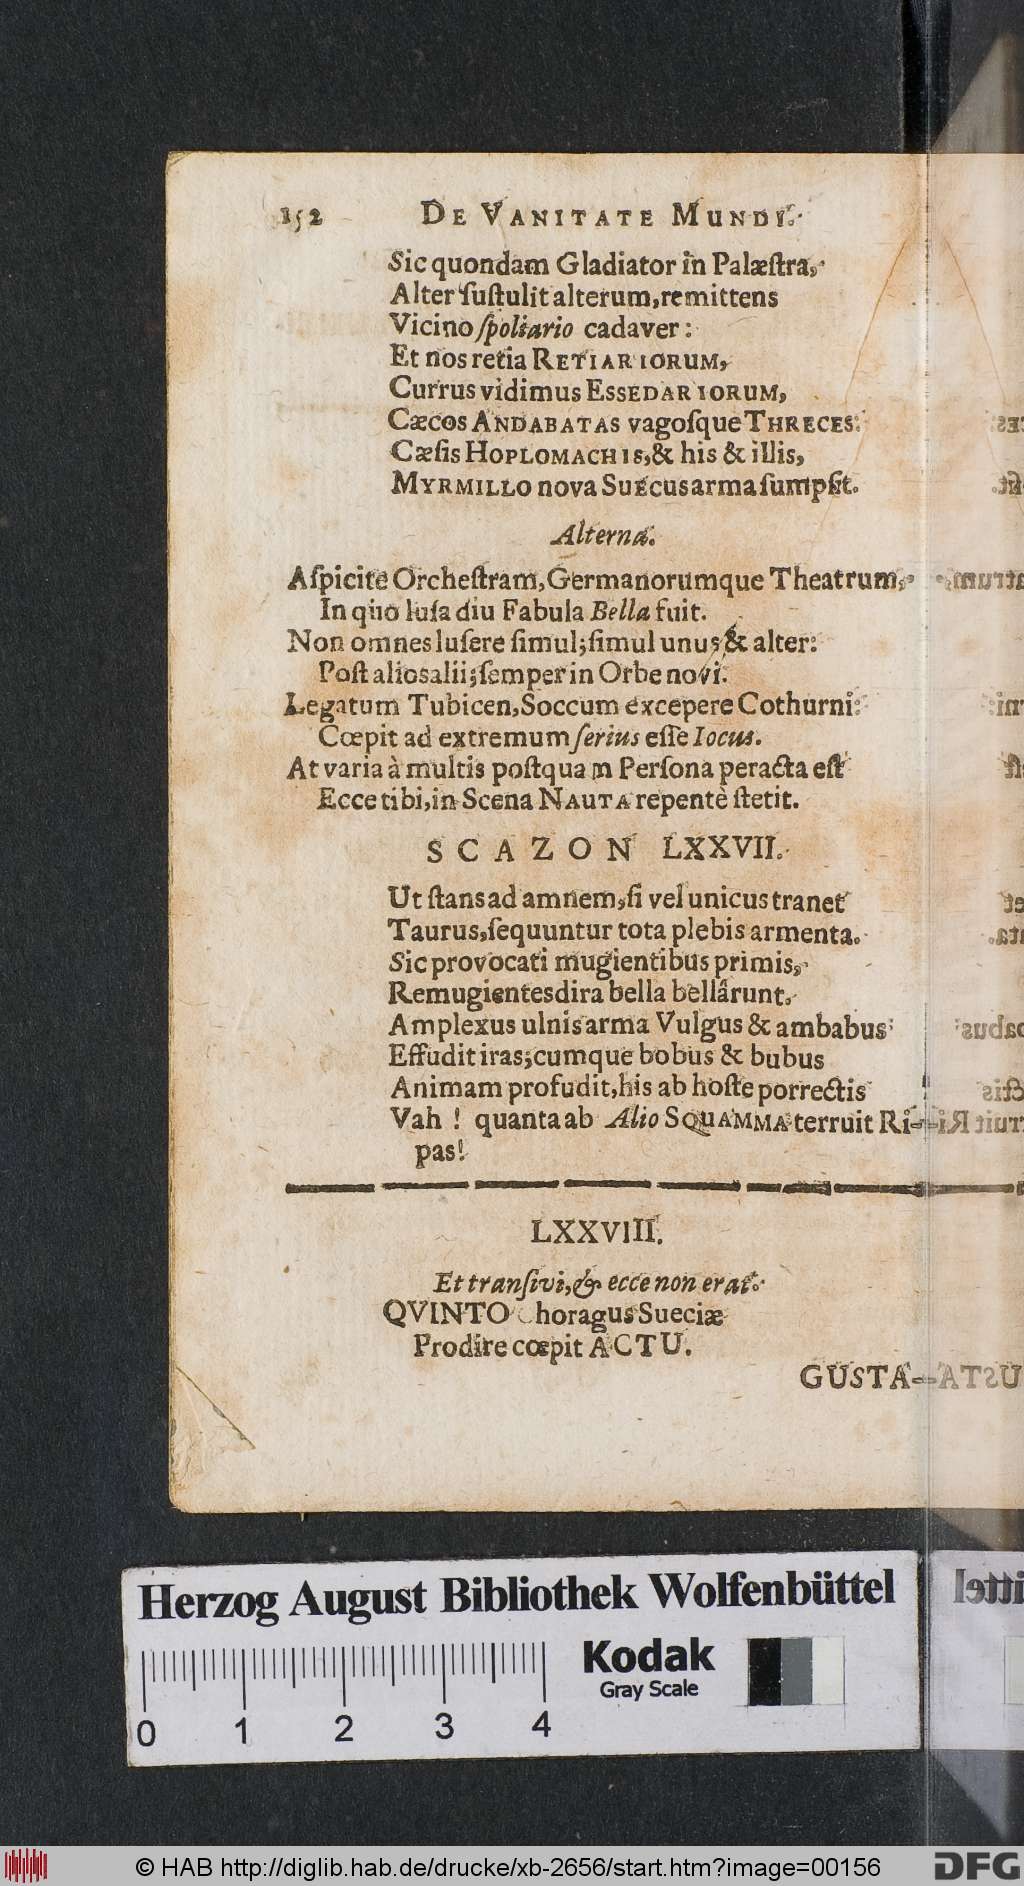 152 DE VANITATE MUNDI.
Sic quondam Gladiator in Palæſtra,
Alter ſuſtulit alterum, remittens
Vicino ſpoliario cadaver:
Et nos retia RETIARIORUM,
Currus vidimus ESSEDARIORUM,
Cæcos ANDABATAS vagoſque THRECES:
Cæſis HOPLOMACHIS, & his & illis,
MYRMILLO nova SUECUS arma ſumpſit.
Alterna.
Aſpicite Orcheſtram, Germanorumque Theatrum,
In quo luſa diu Fabula Bella fuit.
Non omnes luſere ſimul; ſimul unus & alter:
Poſt alios alii; ſemper in Orbe novi.
Legatum Tubicen, Soccum excepere Cothurni:
Cœpit ad extremum ſerius eſſe Iocus.
At varia à multis poſtquam Perſona peracta eſt
Ecce tibi, in Scena NAUTA repentè ſtetit.
SCAZON LXXVII.
Ut ſtans ad amnem, ſi vel unicus tranet
Taurus, ſequuntur tota plebis armenta.
Sic provocati mugientibus primis,
Remugientes dira bella bellârunt.
Amplexus ulnis arma Vulgus & ambabus
Effudit iras; cumque bobus & bubus
Animam profudit, his ab hoſte porrectis
Vah! quanta ab Alio SQUAMMA terruit Ri-
pas!
LXXVIII.
Et tranſivi, & ecce non erat.
QVINTO Choragus Sueciæ
Prodire cœpit ACTU.
GUSTA-
Herzog August Bibliothek Wolfenbüttel
Kodak
Gray Scale
0 1 2 3 4
© HAB http://diglib.hab.de/drucke/xb-2656/start.htm?image=00156
DFG